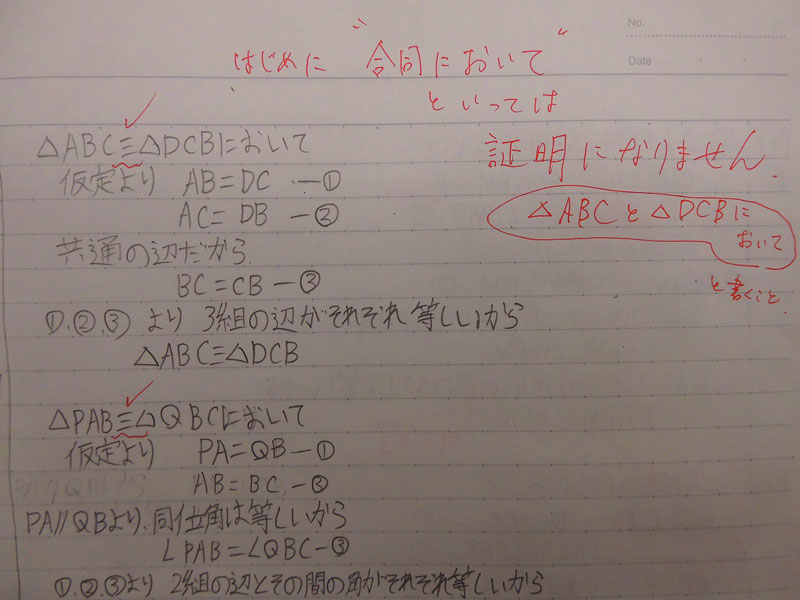 No.
Date
はじめに "合同において"
といっては
証明になりません.
△ABCと△DCBに
おいて
と書くこと.
△ABC≡△DCBにおいて
仮定より AB=DC ―①
AC=DB ―②
共通の辺だから
BC=CB ―③
①.②.③ より 3組の辺がそれぞれ等しいから
△ABC≡△DCB
△PAB≡△QBCにおいて
仮定より PA=QB ―①
AB=BC ―②
PA//QBより.同位角は等しいから
∠PAB=∠QBC ―③
①.②.③より 2組の辺とその間の角がそれぞれ等しいから